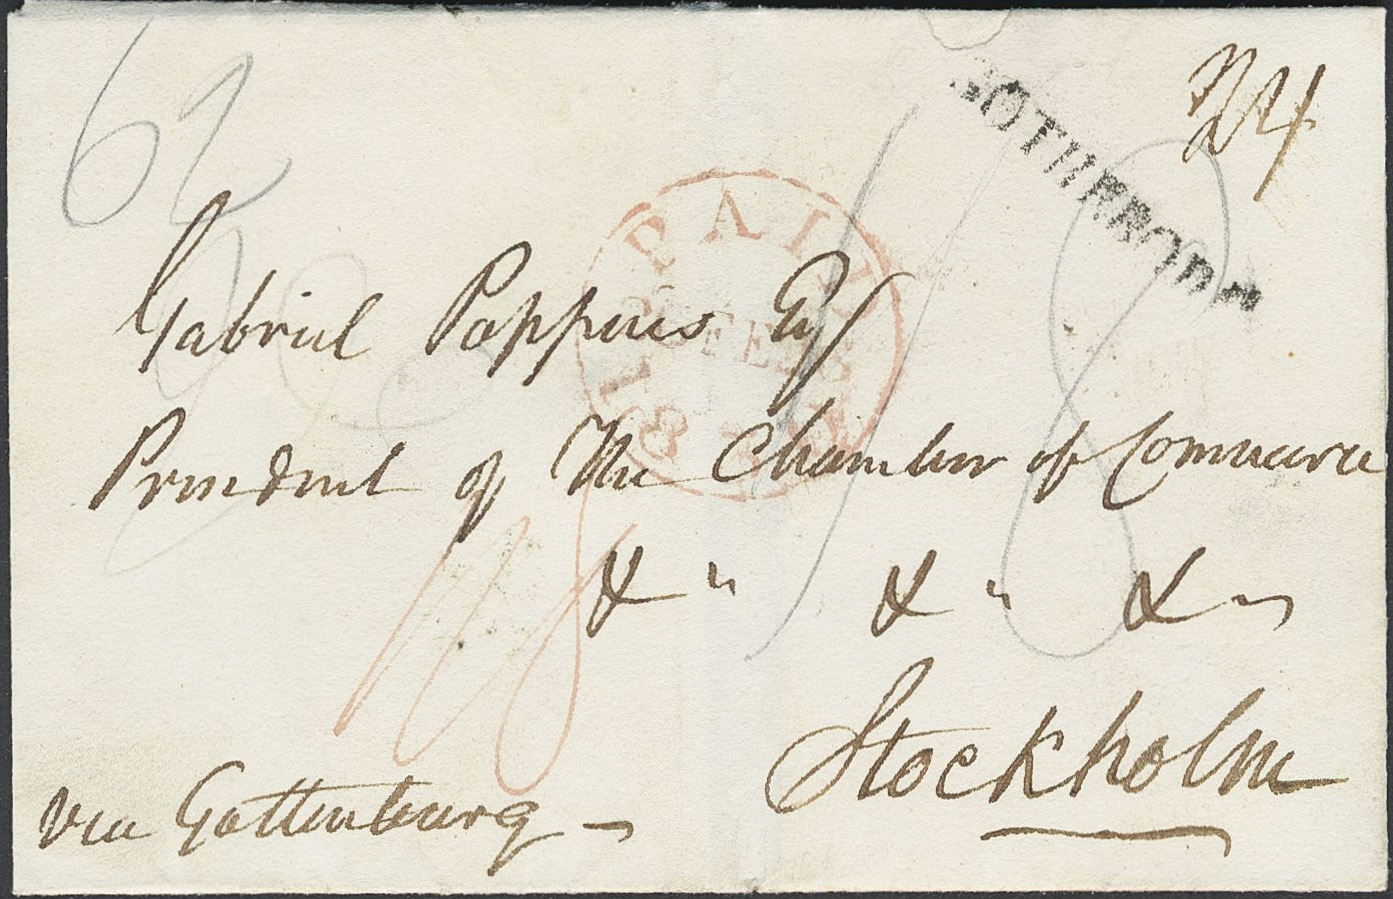 62
24
GOTHEBBORD
PAID
FE
Gabriel Poppius Esq
President of The Chamber of Commerce
& " & " &
Stockholm
via Gottenburg